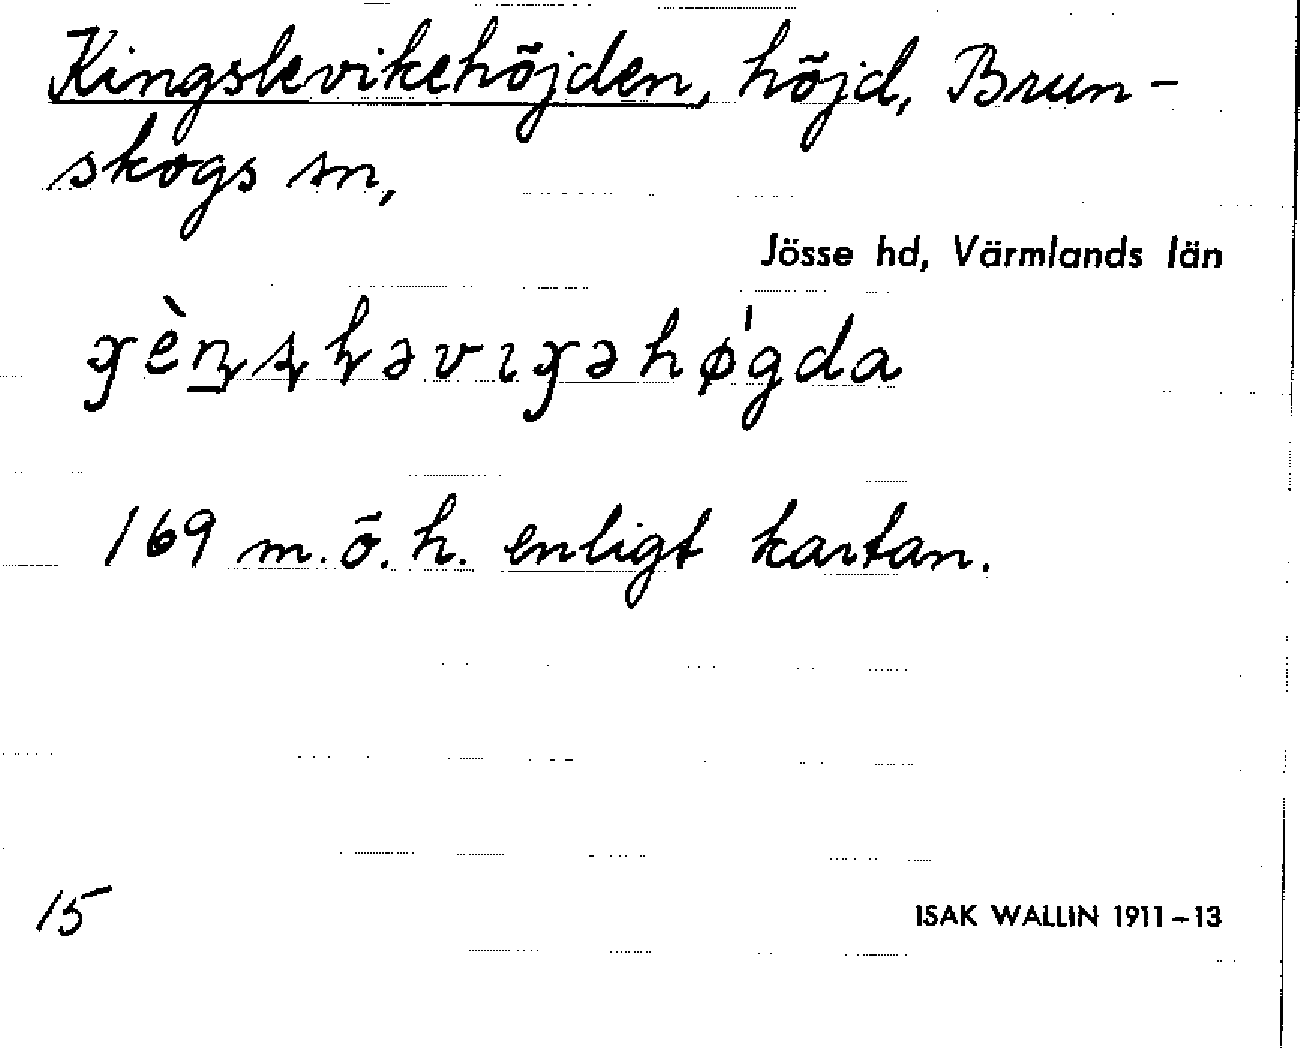 Kingslevikehöjden, höjd, Brun-
skogs sn,
Jösse hd, Värmlands län
169 m.ö.h. enligt kartan.
15
ISAK WALLIN 1911–13